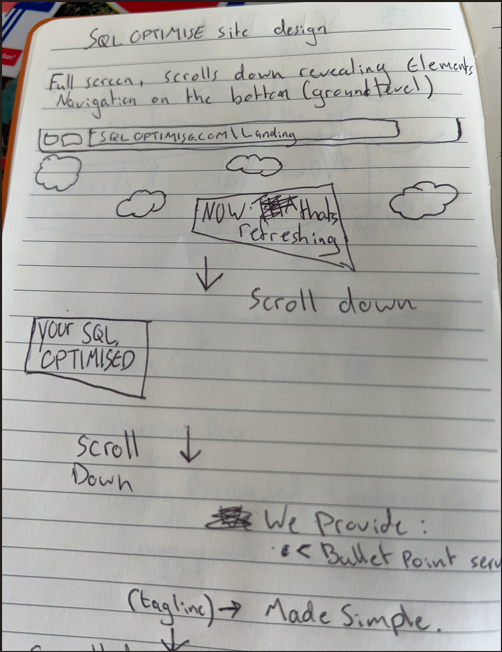 SQL OPTIMISE site design
Full screen, scrolls down revealing Elements
Navigation on the bottom (ground level)
SQLOPTIMISE.COM\Landing
NOW: thats
refreshing
Scroll down
YOUR SQL,
OPTIMISED
Scroll
Down
We Provide:
< Bullet Point serv
(tagline) → Made Simple.